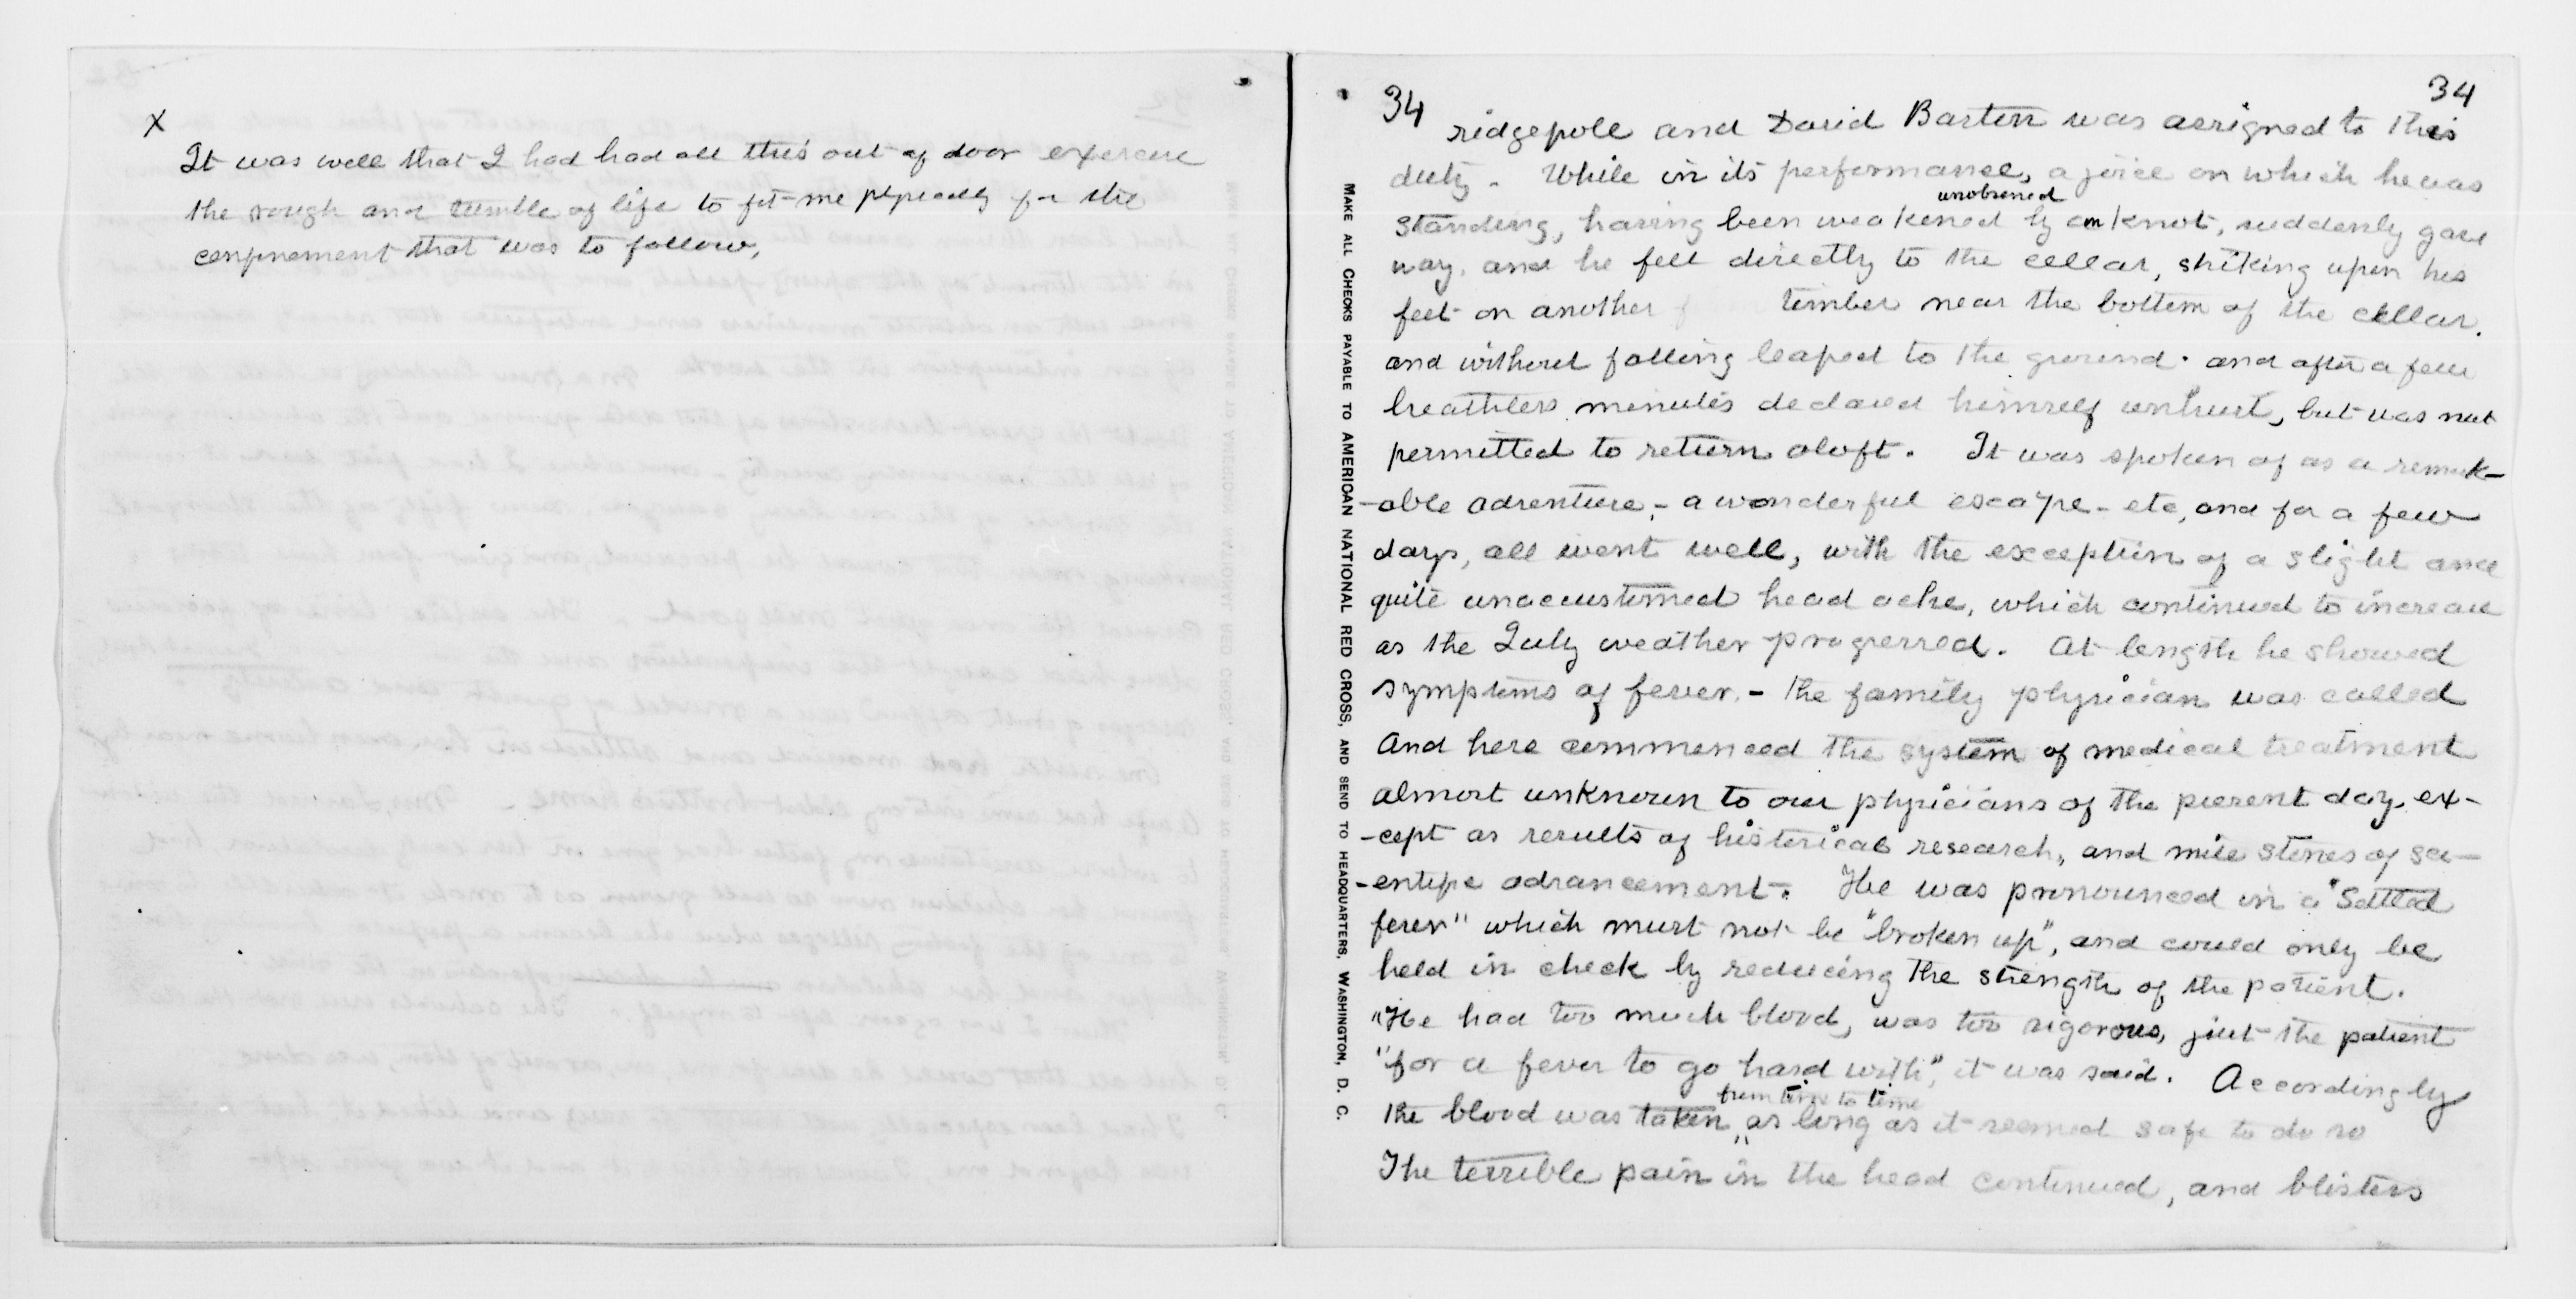 X
It was well that I had had all this out of door exercise
the rough and tumble of life to fit me physically for the
confinement that was to follow,
34
34
ridgepole and David Barton was assigned to this
duty. While in its performance, a joice on which he was
unobserved
standing, having been weakened by an knot, suddenly gave
way, and he fell directly to the cellar, striking upon his
feet on another timber near the bottom of the cellar.
and without falling leaped to the ground. and after a few
breathless minutes declared himself unhurt, but was not
permitted to return aloft. It was spoken of as a remark-
-able adventure, - a wonderful escape - etc, and for a few
days, all went well, with the exception of a slight and
quite unaccustomed head ache, which continued to increase
as the July weather progressed. At length he showed
symptoms of fever. - the family physician was called
And here commenced the system of medical treatment
almost unknown to our physicians of the present day. ex-
-cept as results of historical research, and mile stones of sci-
-entific advancement. He was pronounced in a "Settled
fever" which must not be "broken up", and could only be
held in check by reducing the strength of the patient.
"He had too much blood, was too vigorous, just the patient
"for a fever to go hard with", it was said. Accordingly
from time to time
the blood was taken as long as it seemed safe to do so
The terrible pain in the head continued, and blisters
MAKE ALL CHECKS PAYABLE TO AMERICAN NATIONAL RED CROSS, AND SEND TO HEADQUARTERS, WASHINGTON, D. C.